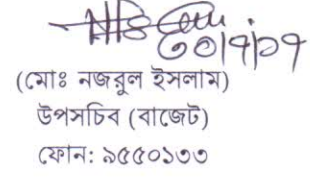 ৩০/৭/০৭
(মোঃ নজরুল ইসলাম)
উপসচিব (বাজেট)
ফোন: ৯৫৫০১৩৩